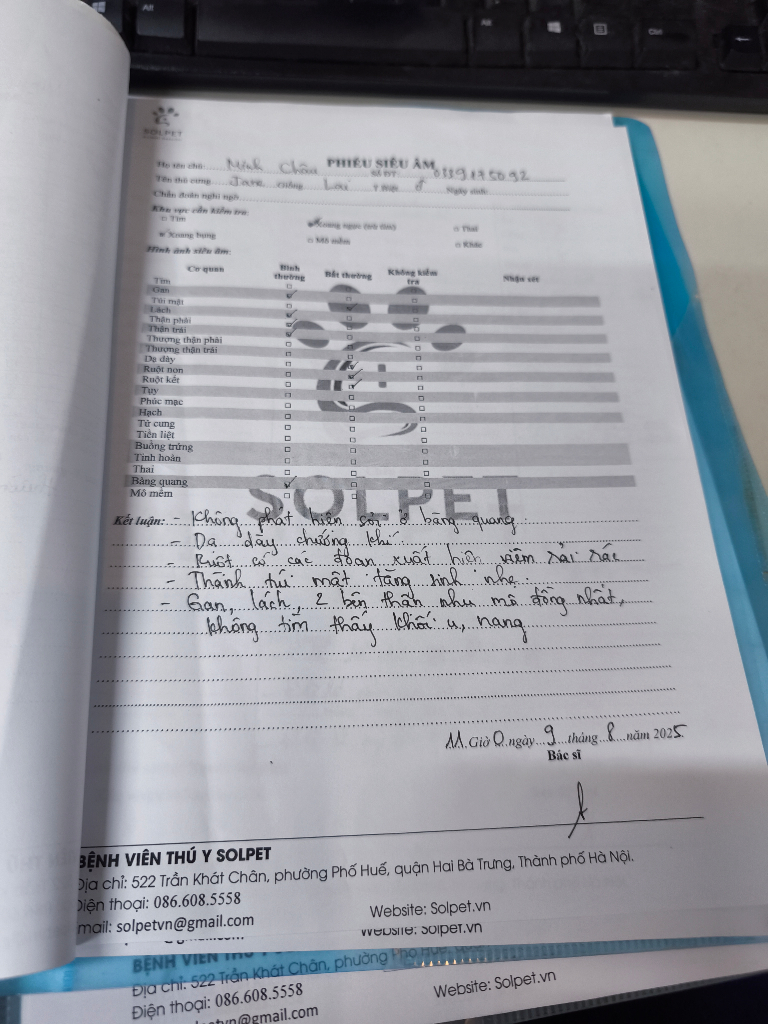 SOLPET
PHIẾU SIÊU ÂM
Họ tên chủ: Minh Châu Số ĐT: 0339175092
Tên thú cưng: Loài
Chẩn đoán nghi ngờ:
Khu vực cần kiểm tra:
Tim
Xoang ngực (trừ tim)
Thai
Xoang bụng
Mô mềm
Khác
Hình ảnh siêu âm:
Cơ quan Bình thường Bất thường Không kiểm tra Nhận xét
Tim
Gan
Túi mật
Lách
Thận phải
Thận trái
Thượng thận phải
Thượng thận trái
Dạ dày
Ruột non
Ruột kết
Tụy
Phúc mạc
Hạch
Tử cung
Tiền liệt
Buồng trứng
Tinh hoàn
Thai
Bàng quang
Mô mềm
SOLPET
Kết luận: - Không phát hiện sỏi ở bàng quang
- Dạ dày chướng khí
- Ruột có các đoạn xuất hiện viêm rải rác
- Thành túi mật tăng sinh nhẹ.
- Gan, lách, 2 bên thận nhu mô đồng nhất,
không tìm thấy khối u, nang
11 Giờ 0 ngày 9 tháng 8 năm 2025
Bác sĩ
BỆNH VIÊN THÚ Y SOLPET
Địa chỉ: 522 Trần Khát Chân, phường Phố Huế, quận Hai Bà Trưng, Thành phố Hà Nội.
Điện thoại: 086.608.5558
mail: solpetvn@gmail.com Website: Solpet.vn
Website: Solpet.vn
BỆNH VIÊN THÚ Y
Địa chỉ: 522 Trần Khát Chân, phường Phố Huế,
Điện thoại: 086.608.5558 Website: Solpet.vn
@gmail.com